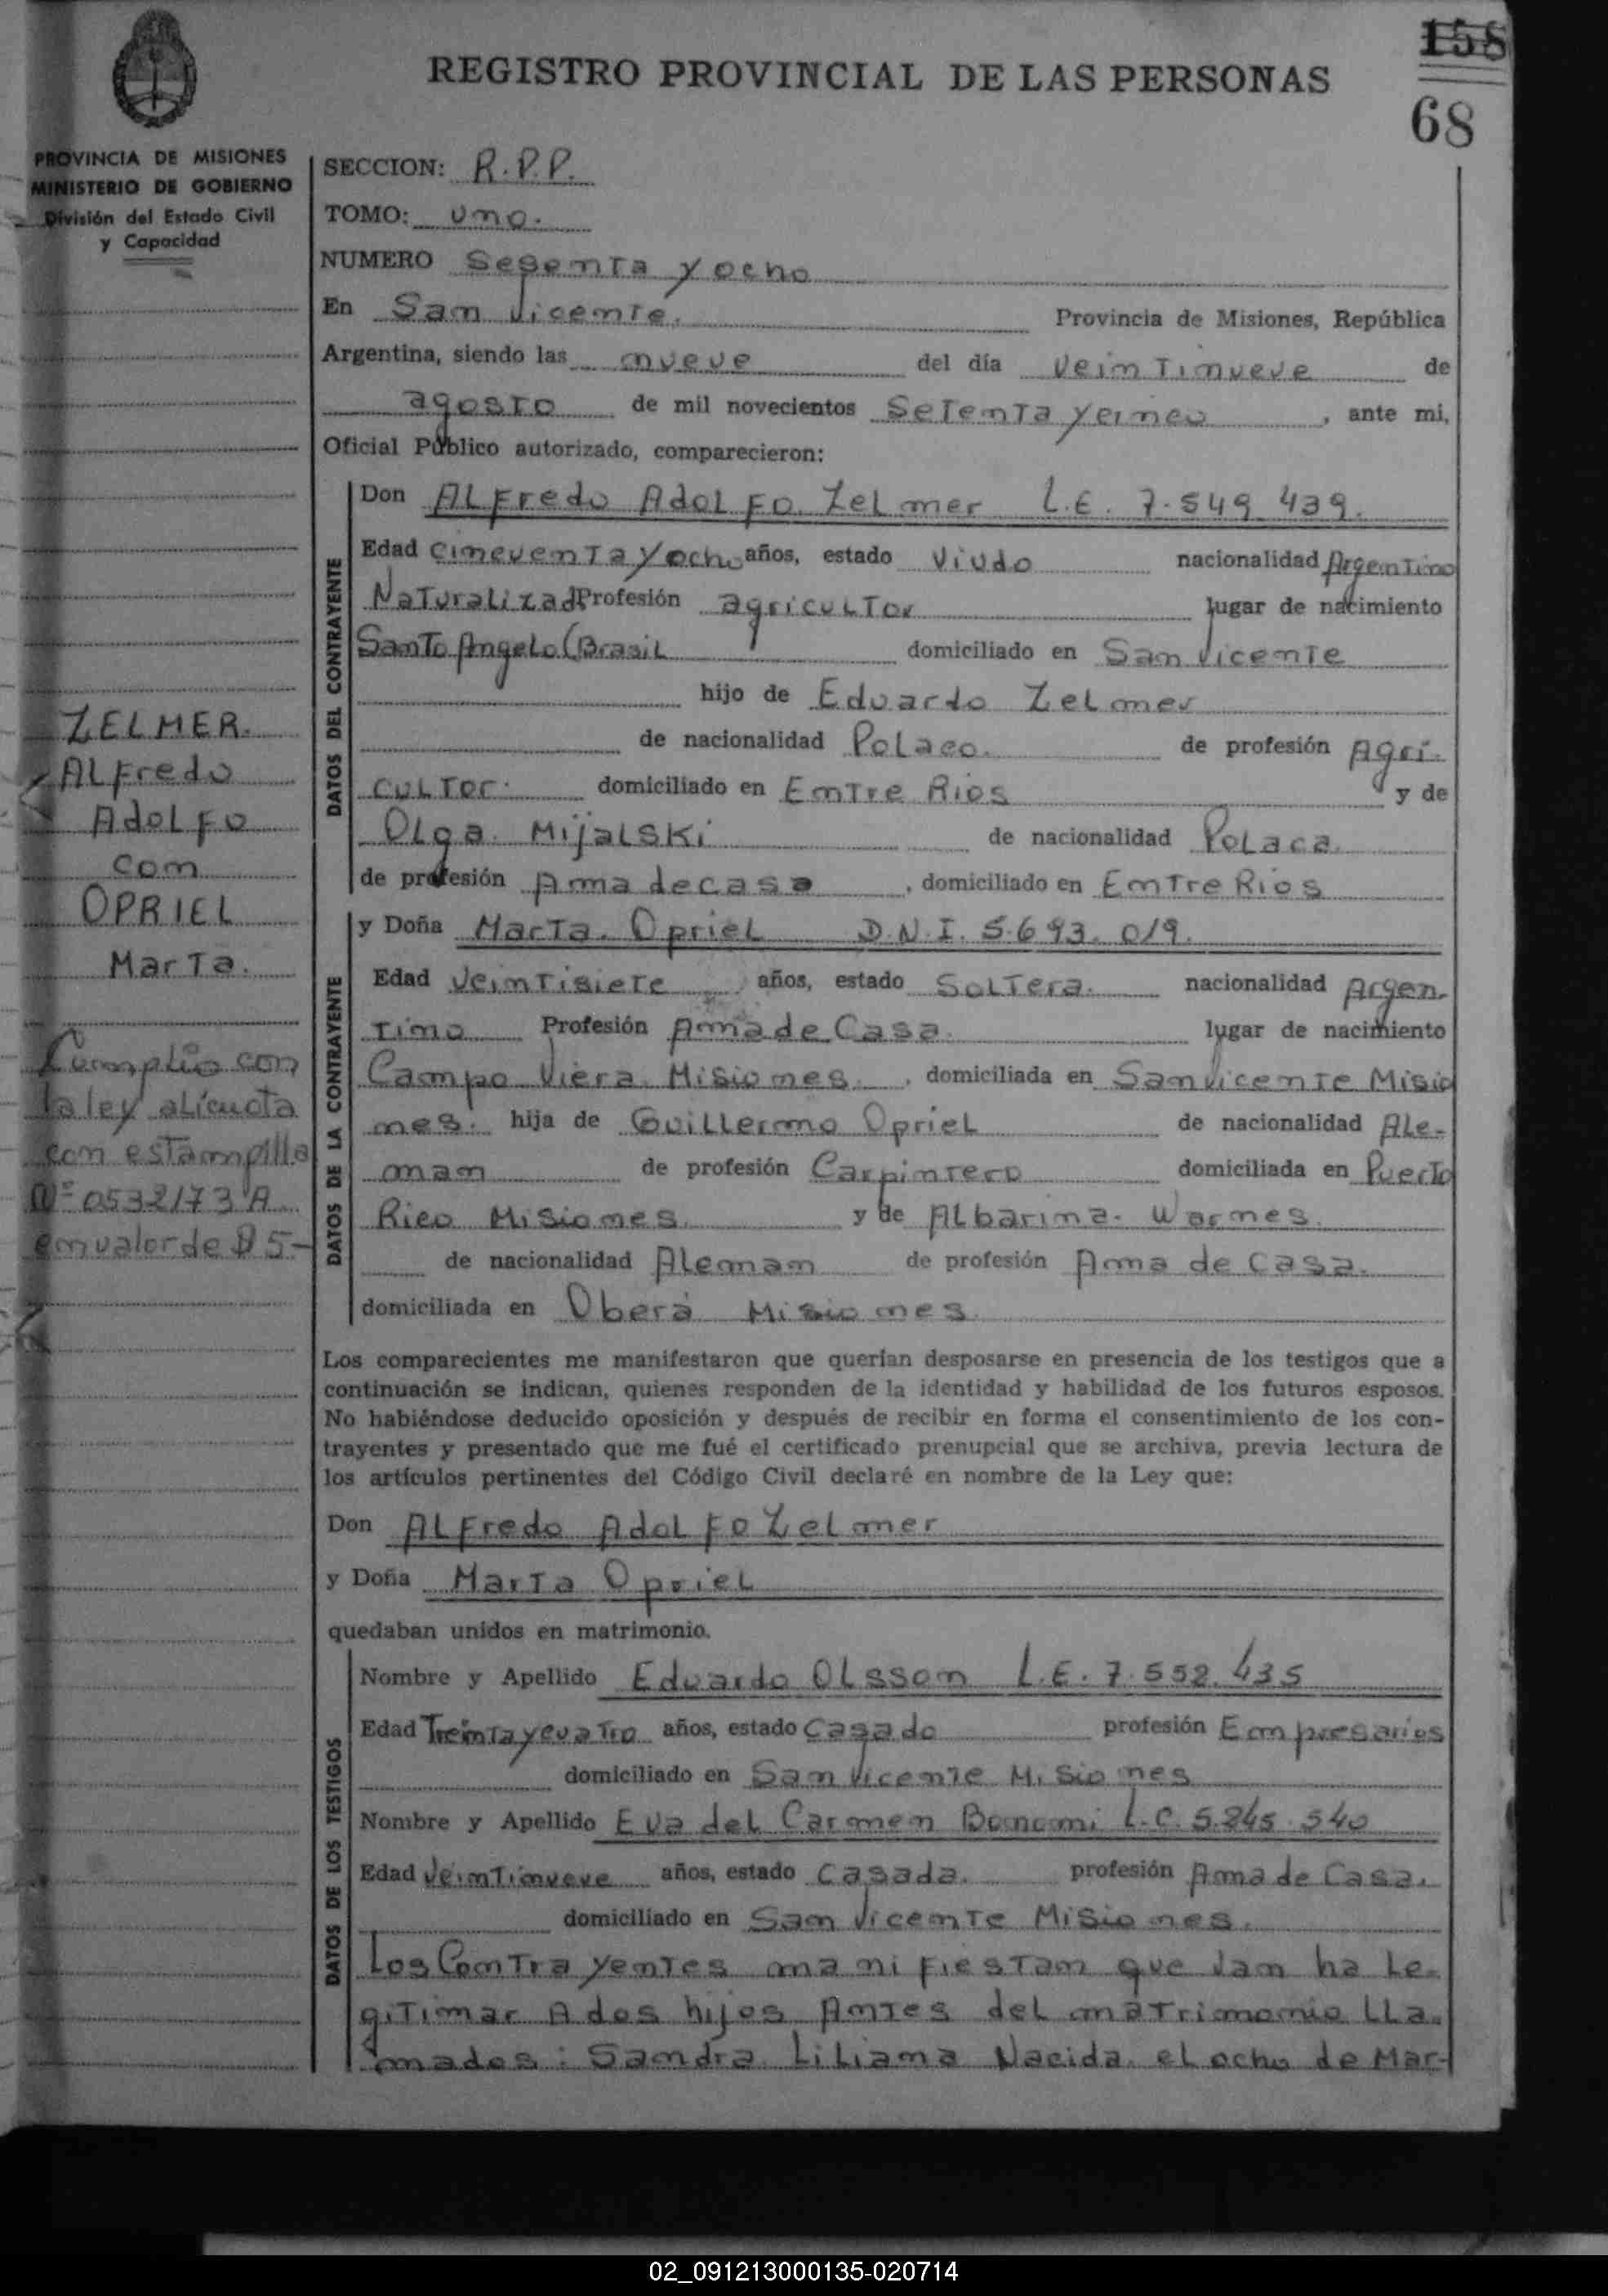 158
68
REGISTRO PROVINCIAL DE LAS PERSONAS
PROVINCIA DE MISIONES
MINISTERIO DE GOBIERNO
División del Estado Civil
y Capacidad
SECCION: R.P.P.
TOMO: uno.
NUMERO Sesenta y ocho
En San Vicente. Provincia de Misiones, República
Argentina, siendo las nueve del día veintinueve de
agosto de mil novecientos setenta y cinco, ante mi,
Oficial Público autorizado, comparecieron:
DATOS DEL CONTRAYENTE
Don ALFredo AdolFo Zelmer L.E. 7.549.439.
Edad cincuenta y ocho años, estado viudo nacionalidad Argentino
Naturalizad Profesión agricultor lugar de nacimiento
Santo Angelo (Brasil domiciliado en San Vicente
hijo de Eduardo Zelmer
de nacionalidad Polaco. de profesión Agri-
cultor. domiciliado en Entre Rios y de
Olga Mijalski de nacionalidad Polaca.
de profesión Ama de casa, domiciliado en Entre Rios
ZELMER.
ALFredo
AdolFo
con
OPRIEL
Marta.
Cumplio con
la ley alicuota
con estampilla
Nº 0532173 A
en valor de $ 5.-
DATOS DE LA CONTRAYENTE
y Doña Marta Opriel D.N.I. 5.693.019.
Edad veintisiete años, estado Soltera. nacionalidad Argen-
tino Profesión Ama de Casa. lugar de nacimiento
Campo Viera Misiones., domiciliada en San Vicente Misio
nes. hija de Guillermo Opriel de nacionalidad Ale-
man de profesión Carpintero domiciliada en Puerto
Rico Misiones. y de Albarina Warmes.
de nacionalidad Aleman de profesión Ama de casa.
domiciliada en Oberá Misiones.
Los comparecientes me manifestaron que querían desposarse en presencia de los testigos que a
continuación se indican, quienes responden de la identidad y habilidad de los futuros esposos.
No habiéndose deducido oposición y después de recibir en forma el consentimiento de los con-
trayentes y presentado que me fué el certificado prenupcial que se archiva, previa lectura de
los artículos pertinentes del Código Civil declaré en nombre de la Ley que:
Don ALFredo AdolFo Zelmer
y Doña Marta Opriel
quedaban unidos en matrimonio.
DATOS DE LOS TESTIGOS
Nombre y Apellido Eduardo Olsson L.E. 7.552.435
Edad Treinta y cuatro años, estado casado profesión Empresarios
domiciliado en San Vicente Misiones
Nombre y Apellido Eva del Carmen Bonomi L.C. 5.845.540
Edad veintinueve años, estado casada. profesión Ama de Casa.
domiciliado en San Vicente Misiones.
Los Contrayentes maniFiestan que van ha Le-
gitimar A dos hijos Antes del matrimonio LLa-
mados: Sandra Liliana Nacida el ocho de Mar-
02_091213000135-020714